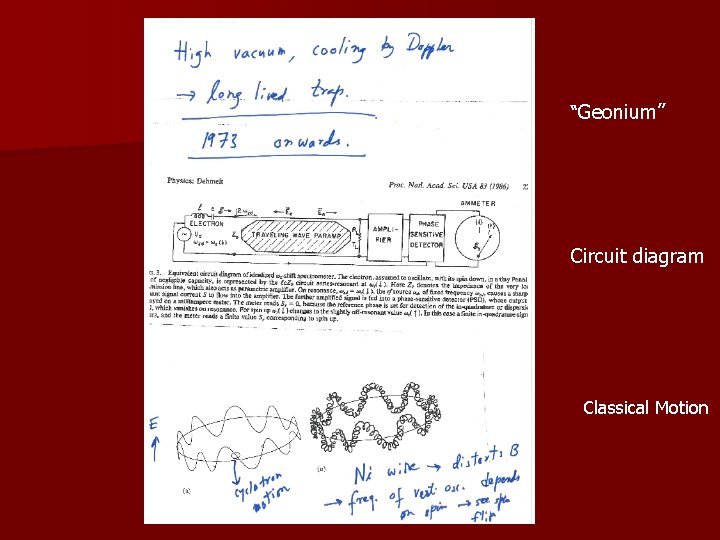 High vacuum, cooling by Doppler
→ long lived trap.
1973 onwards.
“Geonium”
Physics: Dehmelt
Proc. Natl. Acad. Sci. USA 83 (1986)
AMMETER
ELECTRON
TRAVELING WAVE PARAMP
AMPLI-
PIER
PHASE
SENSITIVE
DETECTOR
Circuit diagram
3. Equivalent circuit diagram of idealized shift spectrometer. The electron, assumed to oscillate, with its spin down, in a tiny
of negligible capacity, is represented by the circuit series-resonant at Here denotes the impedance of the very
mission line, which also acts as parametric amplifier. On resonance, the source of fixed frequency causes a sharp
signal current S to flow into the amplifier. The further amplified signal is fed into a phase-sensitive detector (PSD), whose output
on a milliampere meter. The meter reads = 0, because the reference phase is set for detection of the in-quadrature or
, which vanishes on resonance. For spin up changes to the slightly off-resonant value In this case a finite in-quadrature
and the meter reads a finite value corresponding to spin up.
Classical Motion
E
cyclotron
motion
(a)
(b)
Ni wire → distorts B
→ freq. of vert osc. depends
on spin → see spin
flip